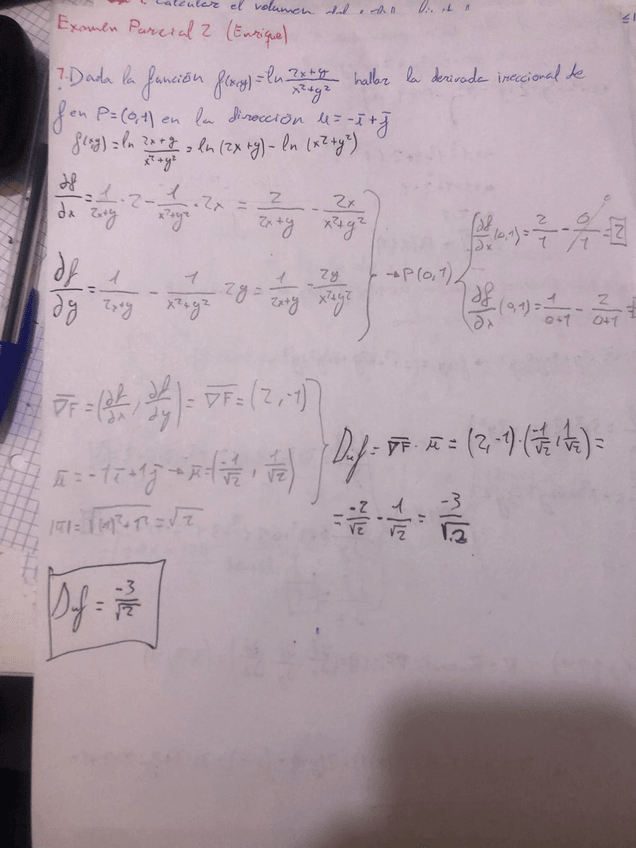 Calcular el volumen
Examen Parcial 2 (Enrique)
7. Dada la función f(x,y)=ln (2x+y)/(x²+y²) hallar la derivada ireccional de
f en P=(0,1) en la dirección u=-i+j
f(x,y)=ln (2x+y)/(x²+y²) = ln(2x+y) - ln(x²+y²)
∂f/∂x = 1/(2x+y) · 2 - 1/(x²+y²) · 2x = 2/(2x+y) - 2x/(x²+y²)
∂f/∂y = 1/(2x+y) - 1/(x²+y²) 2y = 1/(2x+y) - 2y/(x²+y²)
→ P(0,1)
∂f/∂x (0,1) = 2/1 - 0/1 = 2
∂f/∂x (0,1) = 1/(0+1) - 2/(0+1) =
∇F = (∂f/∂x, ∂f/∂y) = ∇F = (2,-1)
u = -1i+1j → u=(-1/√2, 1/√2)
|u| = √((-1)²+1²) = √2
Duf = ∇F · u = (2,-1)·(-1/√2, 1/√2) =
= -2/√2 - 1/√2 = -3/√2
Duf = -3/√2